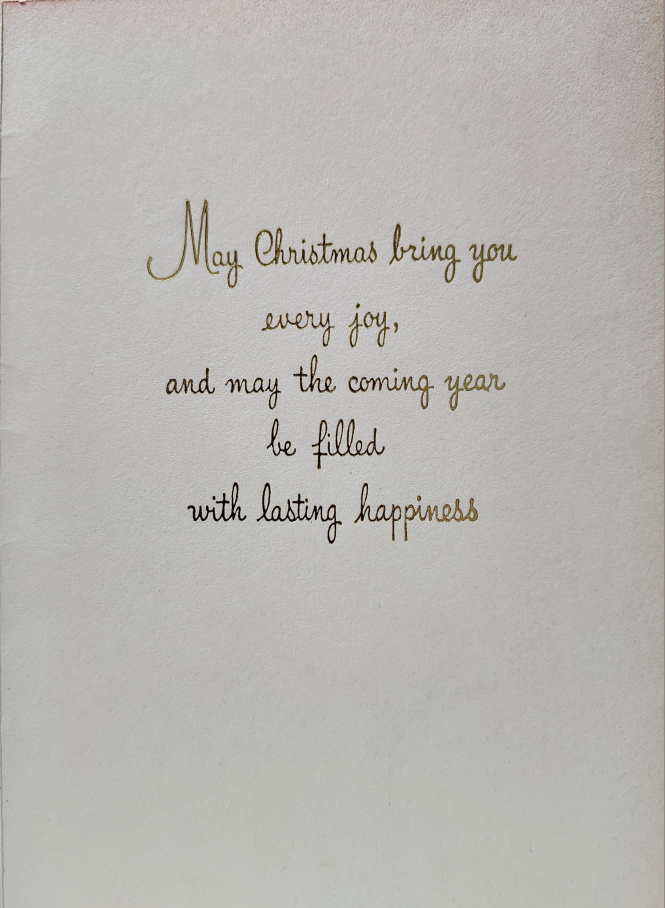 May Christmas bring you
every joy,
and may the coming year
be filled
with lasting happiness